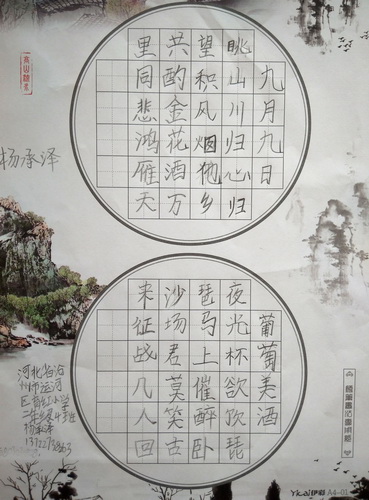 九月九日
眺山川归心归
望积风烟他乡
共酌金花酒万
里同悲鸿雁天
杨承泽
葡萄美酒
夜光杯欲饮琵
琶马上催醉卧
沙场君莫笑古
来征战几人回
河北省沧
州市运河
区育红小学
二年级
杨承泽
A4-01